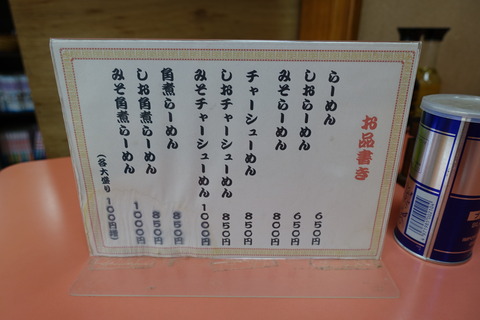 お品書き
らーめん 650円
しおらーめん 650円
みそらーめん 800円
チャーシューめん 850円
しおチャーシューめん 850円
みそチャーシューめん 1000円
角煮らーめん 850円
しお角煮らーめん 850円
みそ角煮らーめん 1000円
(各大盛り 100円増)